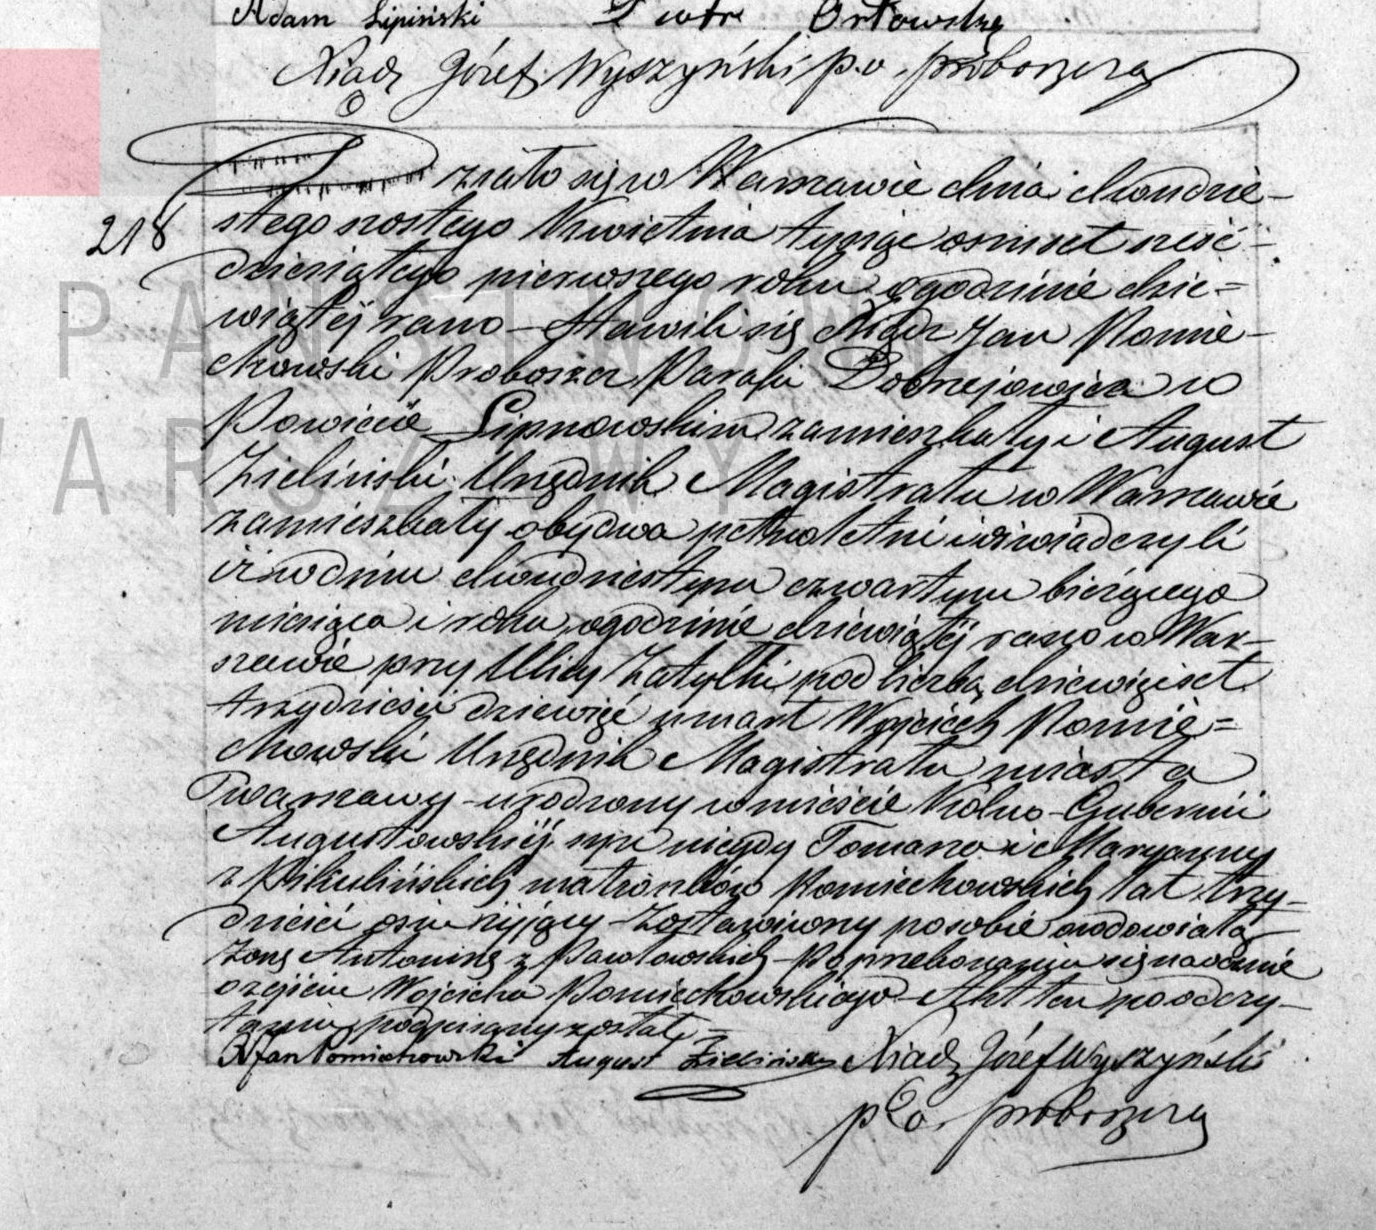 Adam Lipiński Piotr Orłowski
Xiądz Józef Wyszyński p.o. proboszcza
218
Działo się w Warszawie dnia dwudzie-
stego szóstego Kwietnia tysiąc osmset sześć-
dziesiątego pierwszego roku o godzinie dzie=
wiątej rano – Stawili się Xiądz Jan Pomie-
chowski Proboszcz Parafii w
Powiecie Lipnowskim zamieszkały i August
Zieliński Urzędnik Magistratu w Warszawie
zamieszkały obydwa pełnoletni i oświadczyli
iż w dniu dwudziestym czwartym bieżącego
miesiąca i roku o godzinie dziewiątej rano w War-
szawie przy Ulicy Zatyłki pod liczbą dziewięćset
trzydzieści dziewięć umarł Wojciech Pomie=
chowski Urzędnik Magistratu miasta
Warszawy – urodzony w mieście Kolno – Gubernii
Augustowskiéj syn niegdy Tomasza i Maryanny
z Mikulińskich małżonków Pomiechowskich lat trzy-
dzieści osm żyjący – Zostawiwszy po sobie owdowiałą
Żonę Antoninę z Pawłowskich – Po przekonaniu się naocznie
o zejściu Wojciecha Pomiechowskiego – Akt ten po odczy-
taniu podpisany został =
X Jan Pomiechowski August Zieliński Xiądz Józef Wyszyński
p.o. proboszcza
PAŃSTWOWE
WARSZAWY